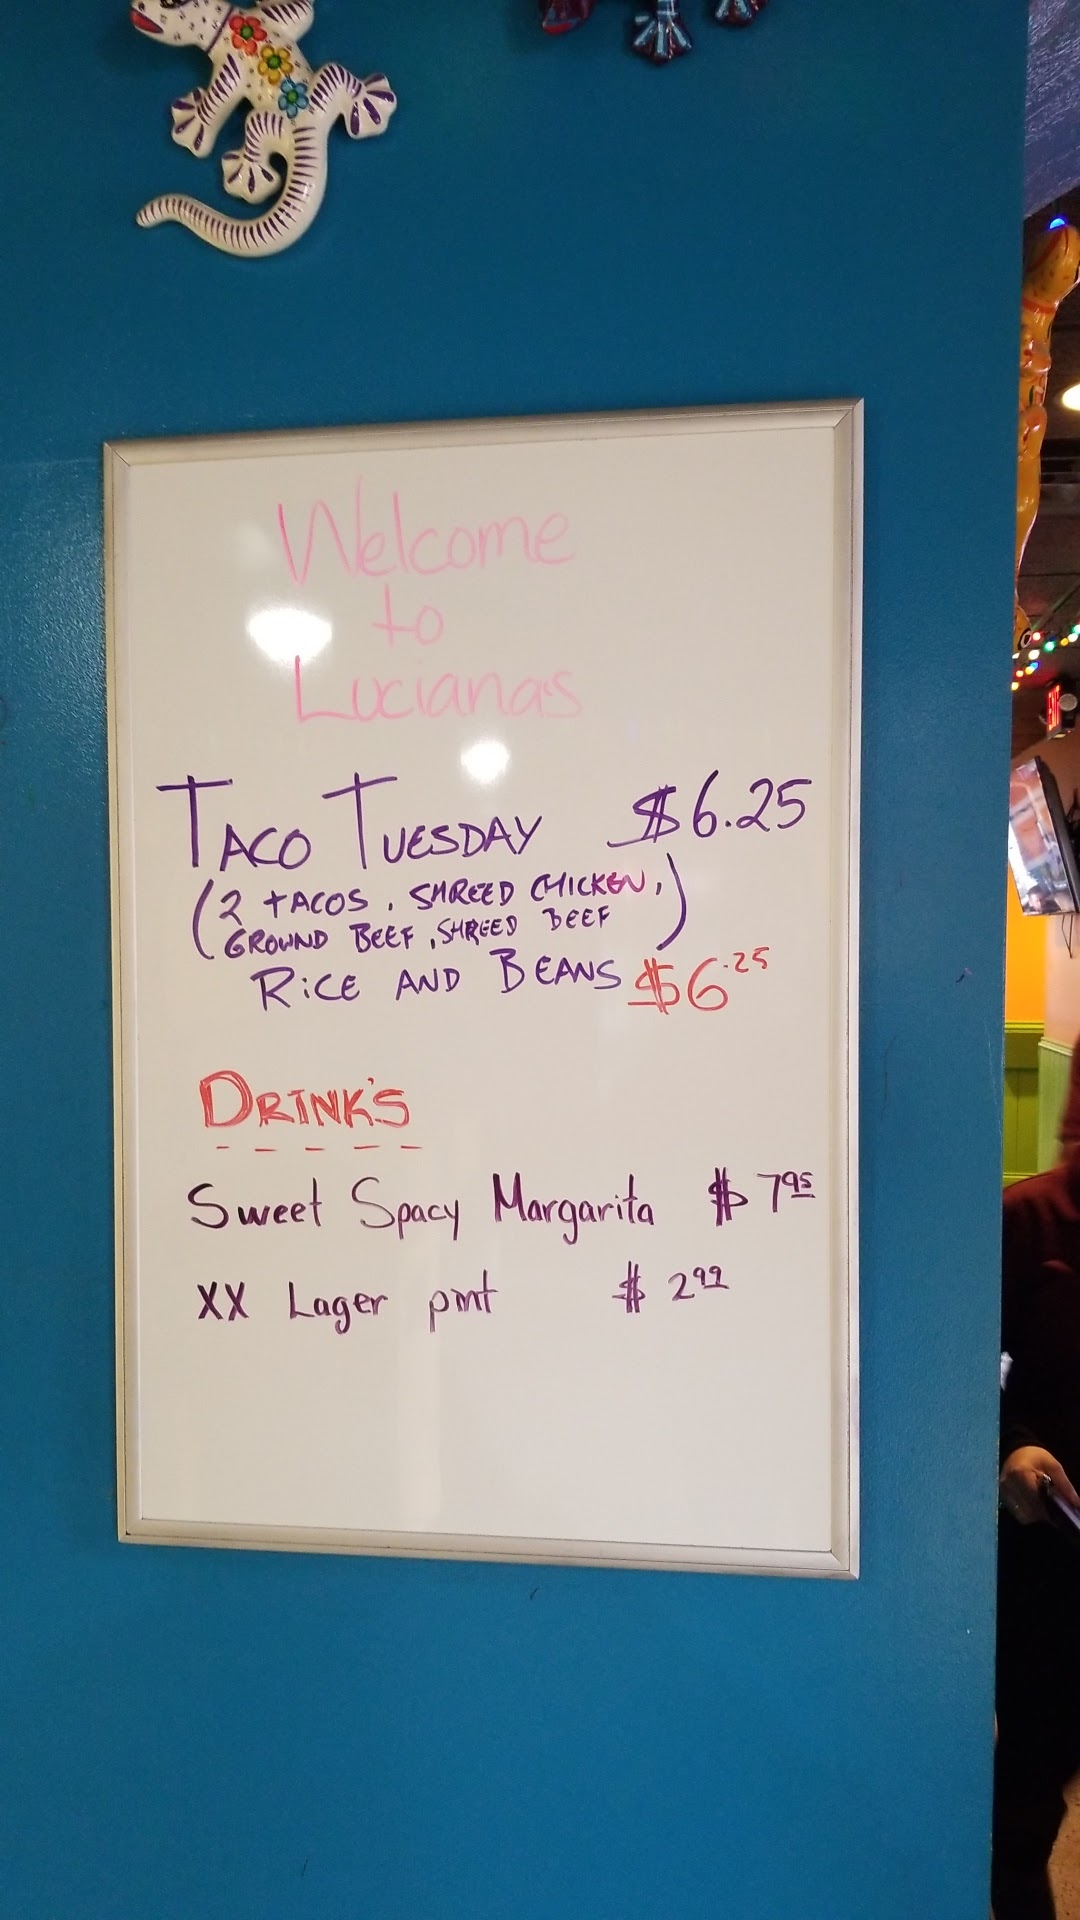 Welcome
to
Luciana's
TACO TUESDAY $6.25
(2 TACOS, SHREED CHICKEN,
GROUND BEEF, SHREED BEEF)
RiCE AND BEANS $6.25
DRINK'S
Sweet Spacy Margarita $7.95
XX Lager pint $2.99